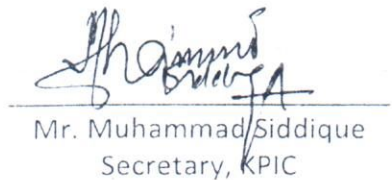 Mr. Muhammad Siddique
Secretary, KPIC